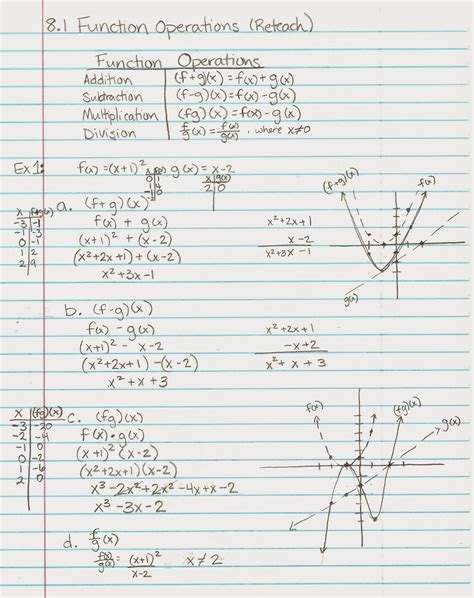 8.1 Function Operations (Reteach)
Function Operations
Addition (f+g)(x) = f(x) + g(x)
Subtraction (f-g)(x) = f(x) - g(x)
Multiplication (fg)(x) = f(x) - g(x)
Division f/g(x) = f(x)/g(x), where x≠0
Ex 1: f(x) = (x+1)² g(x) = x-2
x f(x)
0 1
1 4
-1 0
x g(x)
2 0
a. (f+g)(x)
f(x) + g(x)
(x+1)² + (x-2)
(x²+2x+1) + (x-2)
x²+3x-1
x f+g(x)
-3 -1
-1 -3
0 -1
1 2
2 9
x²+2x+1
x-2
x²+3x-1
(f+g)(x)
f(x)
g(x)
b. (f-g)(x)
f(x) - g(x)
(x+1)² - (x-2)
(x²+2x+1) - (x-2)
x² + x + 3
x²+2x+1
-x+2
x² + x + 3
x (fg)(x)
-3 -20
-2 -4
-1 0
0 -2
1 -6
2 0
c. (fg)(x)
f(x)•g(x)
(x+1)² (x-2)
(x²+2x+1)(x-2)
x³-2x²+2x²-4x+x-2
x³-3x-2
f(x)
(fg)(x)
g(x)
d. f/g(x)
f(x)/g(x) = (x+1)²/x-2 x≠2